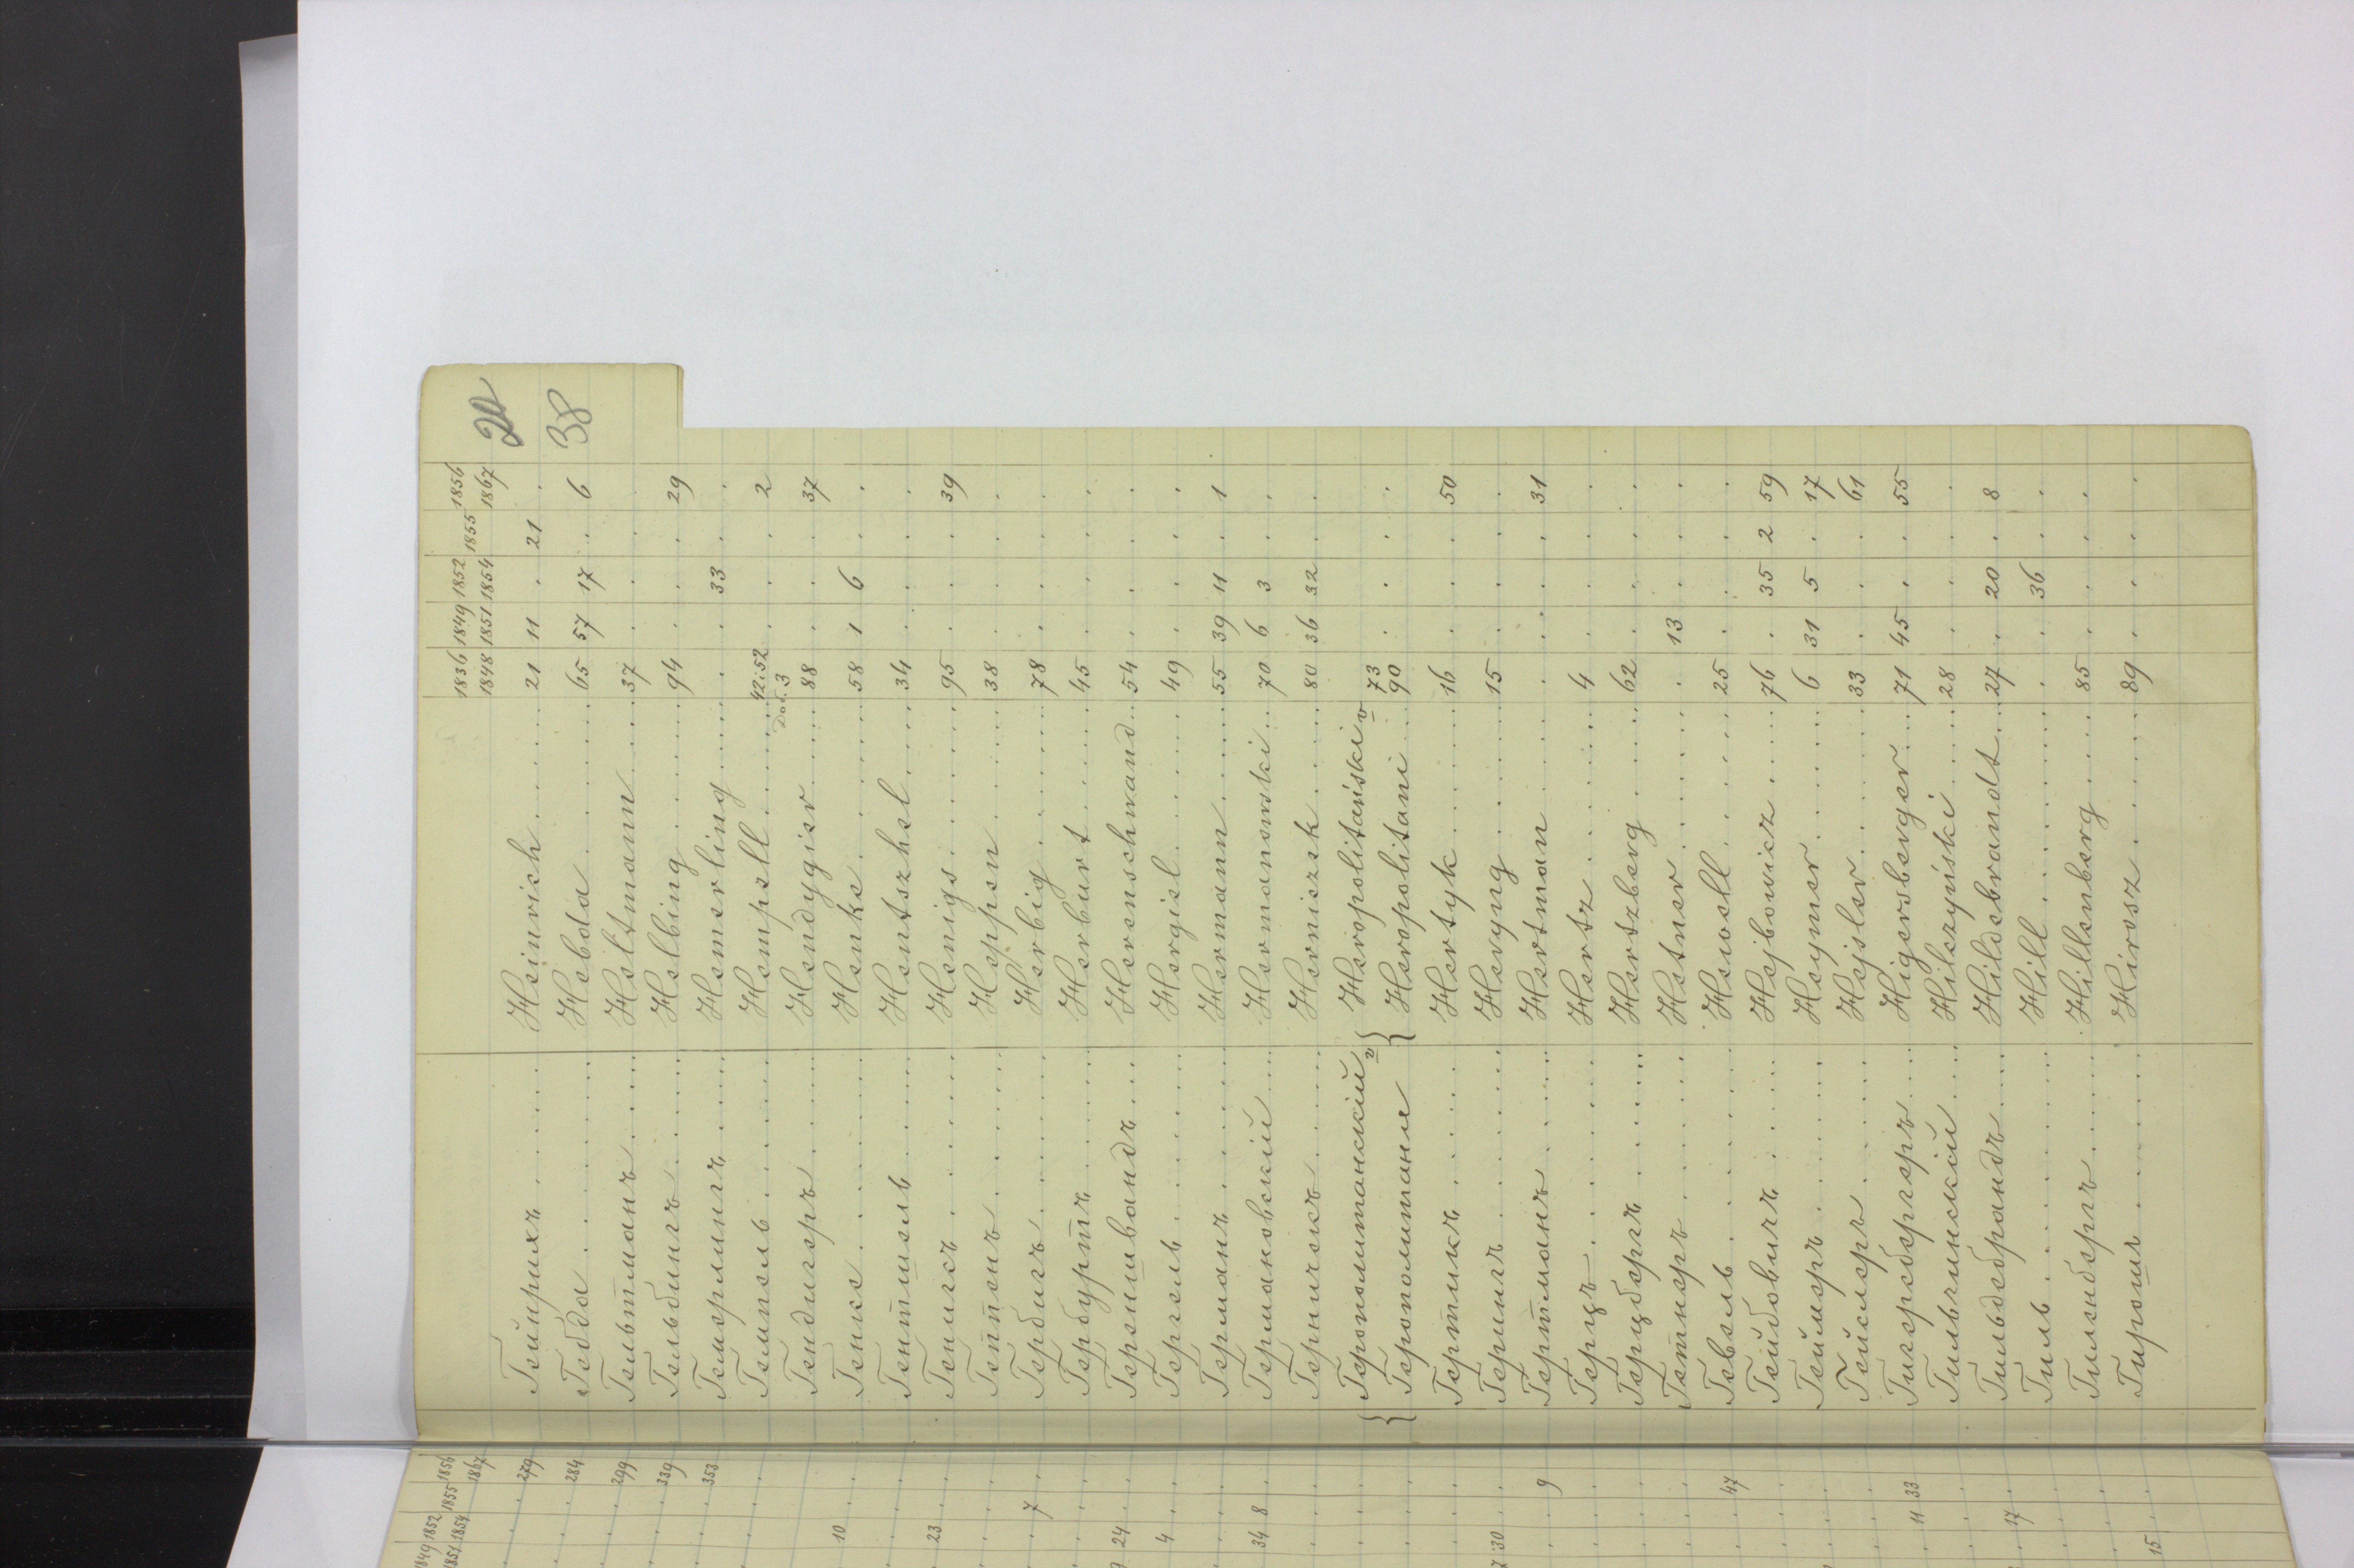 20
38
1836 1849 1852 1855 1856
1848 1851 1854 1867
Гейнрихъ . . . Heinrich . . . 21 11 . 21 .
Гебда . . . Hebda . . . 65 57 17 . 6
Гельтманъ . . . Heltmann . . . 37 . . . .
Гельбингъ . . . Helbing . . . 94 . . . 29
Гемерлингъ . . . Hemerling . . . . . 33 . .
Гемпель . . . Hempell . . . 42:52 . . . 2
Dod. 3
Гендигеръ . . . Hendygier . . . 88 . . . 37
Генке . . . Henke . . . 58 1 6 . .
Гентшель . . . Hentszhel . . . 34 . . . .
Генигсъ . . . Henigs . . . 95 . . . 39
Геппенъ . . . Heppen . . . 38 . . . .
Гербигъ . . . Herbig . . . 78 . . . .
Гербуртъ . . . Herburt . . . 45 . . . .
Гереншвандъ . . . Herenschwand . . . 54 . . . .
Гергель . . . Hergiel . . . 49 . . . .
Германъ . . . Hermann . . . 55 39 11 . 1
Германовскій . . . Hermanowski . . . 70 6 3 . .
Герничекъ . . . Herniczek . . . 80 36 32 . .
{ Герополитанскій v { Heropolitański v 73 . . . .
Герополитани Heropolitani . . . 90
Гертикъ . . . Hertyk . . . 16 . . . 50
Герингъ . . . Heryng . . . 15 . . . .
Гертманъ . . . Hertman . . . . . . . 31
Герцъ . . . Hertz . . . 4 . . . .
Герцбергъ . . . Hertzberg . . . 62 . . . .
Гетнеръ . . . Hetner . . . . 13 . . .
Гевель . . . Hewell . . . 25 . . . .
Гейбовичъ . . . Hejbowicz . . . 76 . 35 2 59
Геймеръ . . . Heymer . . . 6 31 5 . 17
Гейслеръ . . . Hejsler . . . 33 . . . 61
Гигерсбергеръ . . . Higersberger . . . 71 45 . . 55
Гильчинскій . . . Hilczyński . . . 28 . . . .
Гильдебрандъ . . . Hildebrandt . . . 27 . 20 . 8
Гиль . . . Hill . . . . . 36 . .
Гиленбергъ . . . Hillenberg . . . 85 . . . .
Гирошъ . . . Hirosz . . . 89 . . . .
1849 1852 1855 1856
1851 1854 1867
279
284
299
339
353
10
23
7
24
4
34 8
30
9
47
11 33
17
15